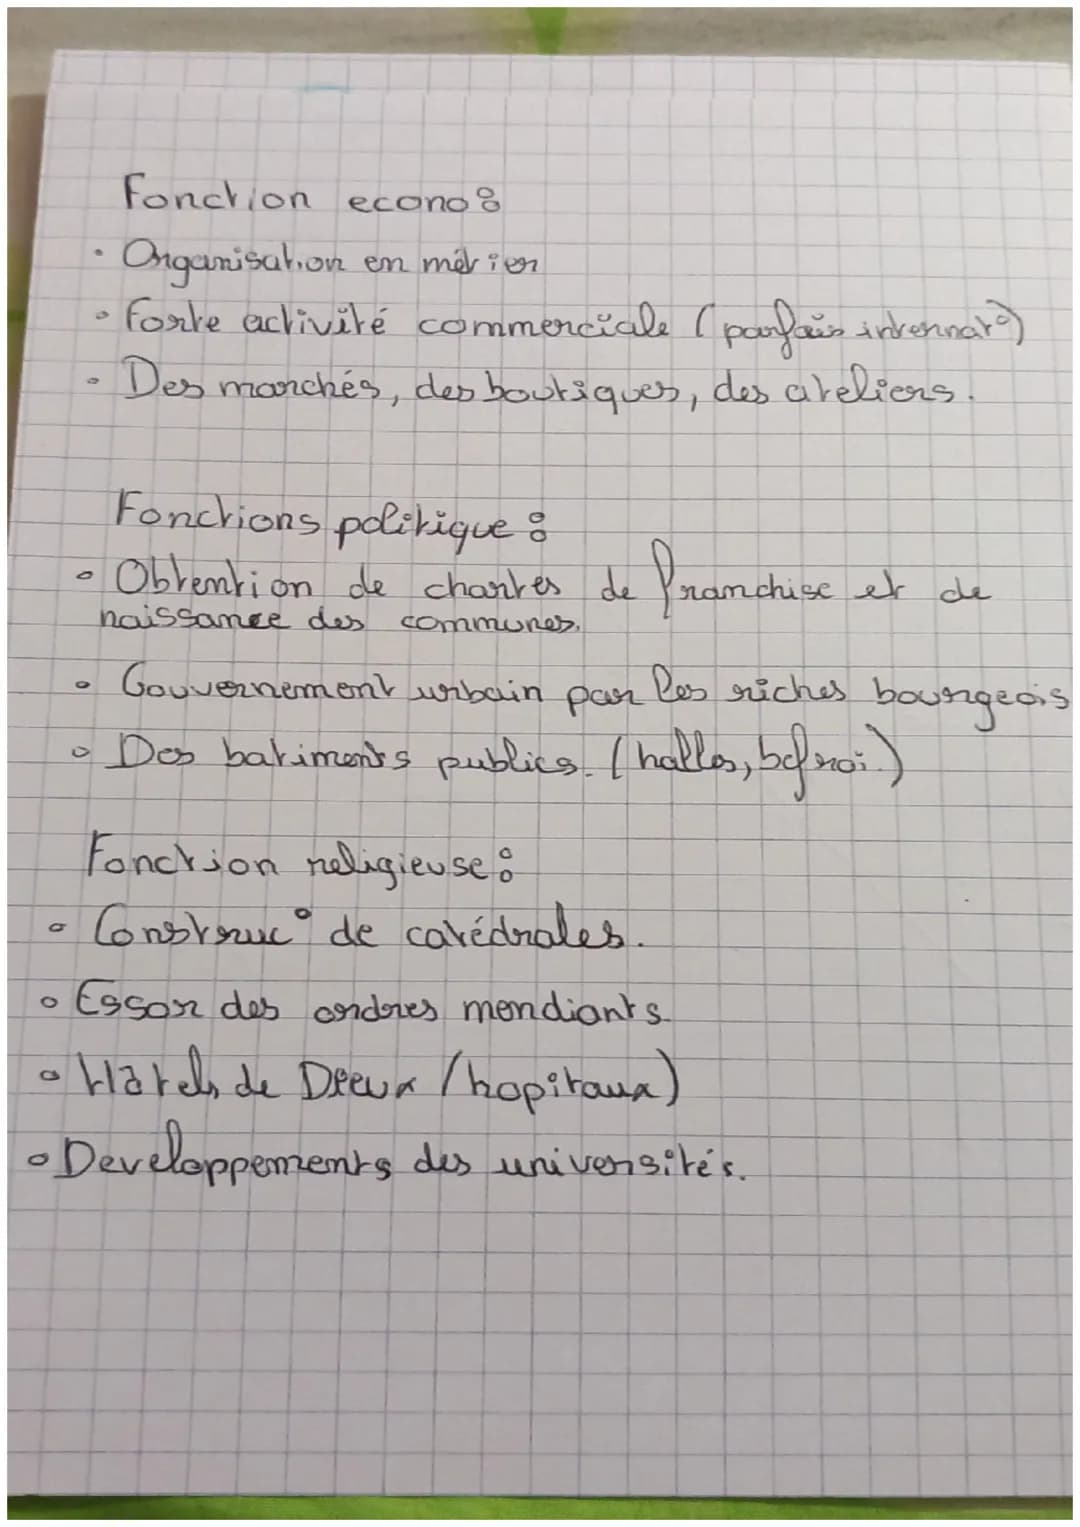 Fonction econo :
• Organisation en métier
• Forte activité commerciale (parfois internat°)
• Des marchés, des boutiques, des ateliers.
Fonctions politique :
• Obtention de chartes de franchise et de
naissance des communes.
• Gouvernement urbain par les riches bourgeois
• Des batiments publics. (halles, befroi.)
Fonction religieuse :
• Construc° de catédrales.
• Essor des ordres mendiants.
• Hôtels de Dieux (hopitaux)
• Developpements des universités.